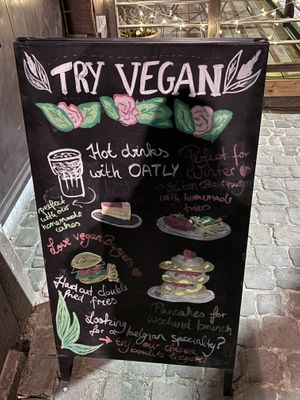 TRY VEGAN
Hot drinks
with OATLY
perfect
with our
homemade
cakes
Perfect for
Winter
with homemade
fries
Love Vegan Burgers
Hand cut double
fried fries
Pancakes for
weekend brunch
Looking
for a belgian specialty?
→ try our classic
boulets liégeois